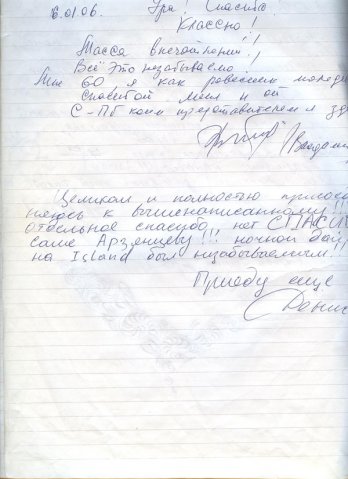 6.01.06. Ура! Спасибо.
Классно!
Масса впечатлений!
Всё это незабываемо!
Мне 60, я как ровесник
спасибо и от
С-Пб коим представителем я
Целиком и полностью присое
няюсь к вышенаписанному!
Отдельное спасибо, нет СПАСИ
Арзянцеву!!! ночной
на Island был незабываемым!!
Приеду еще
Денис